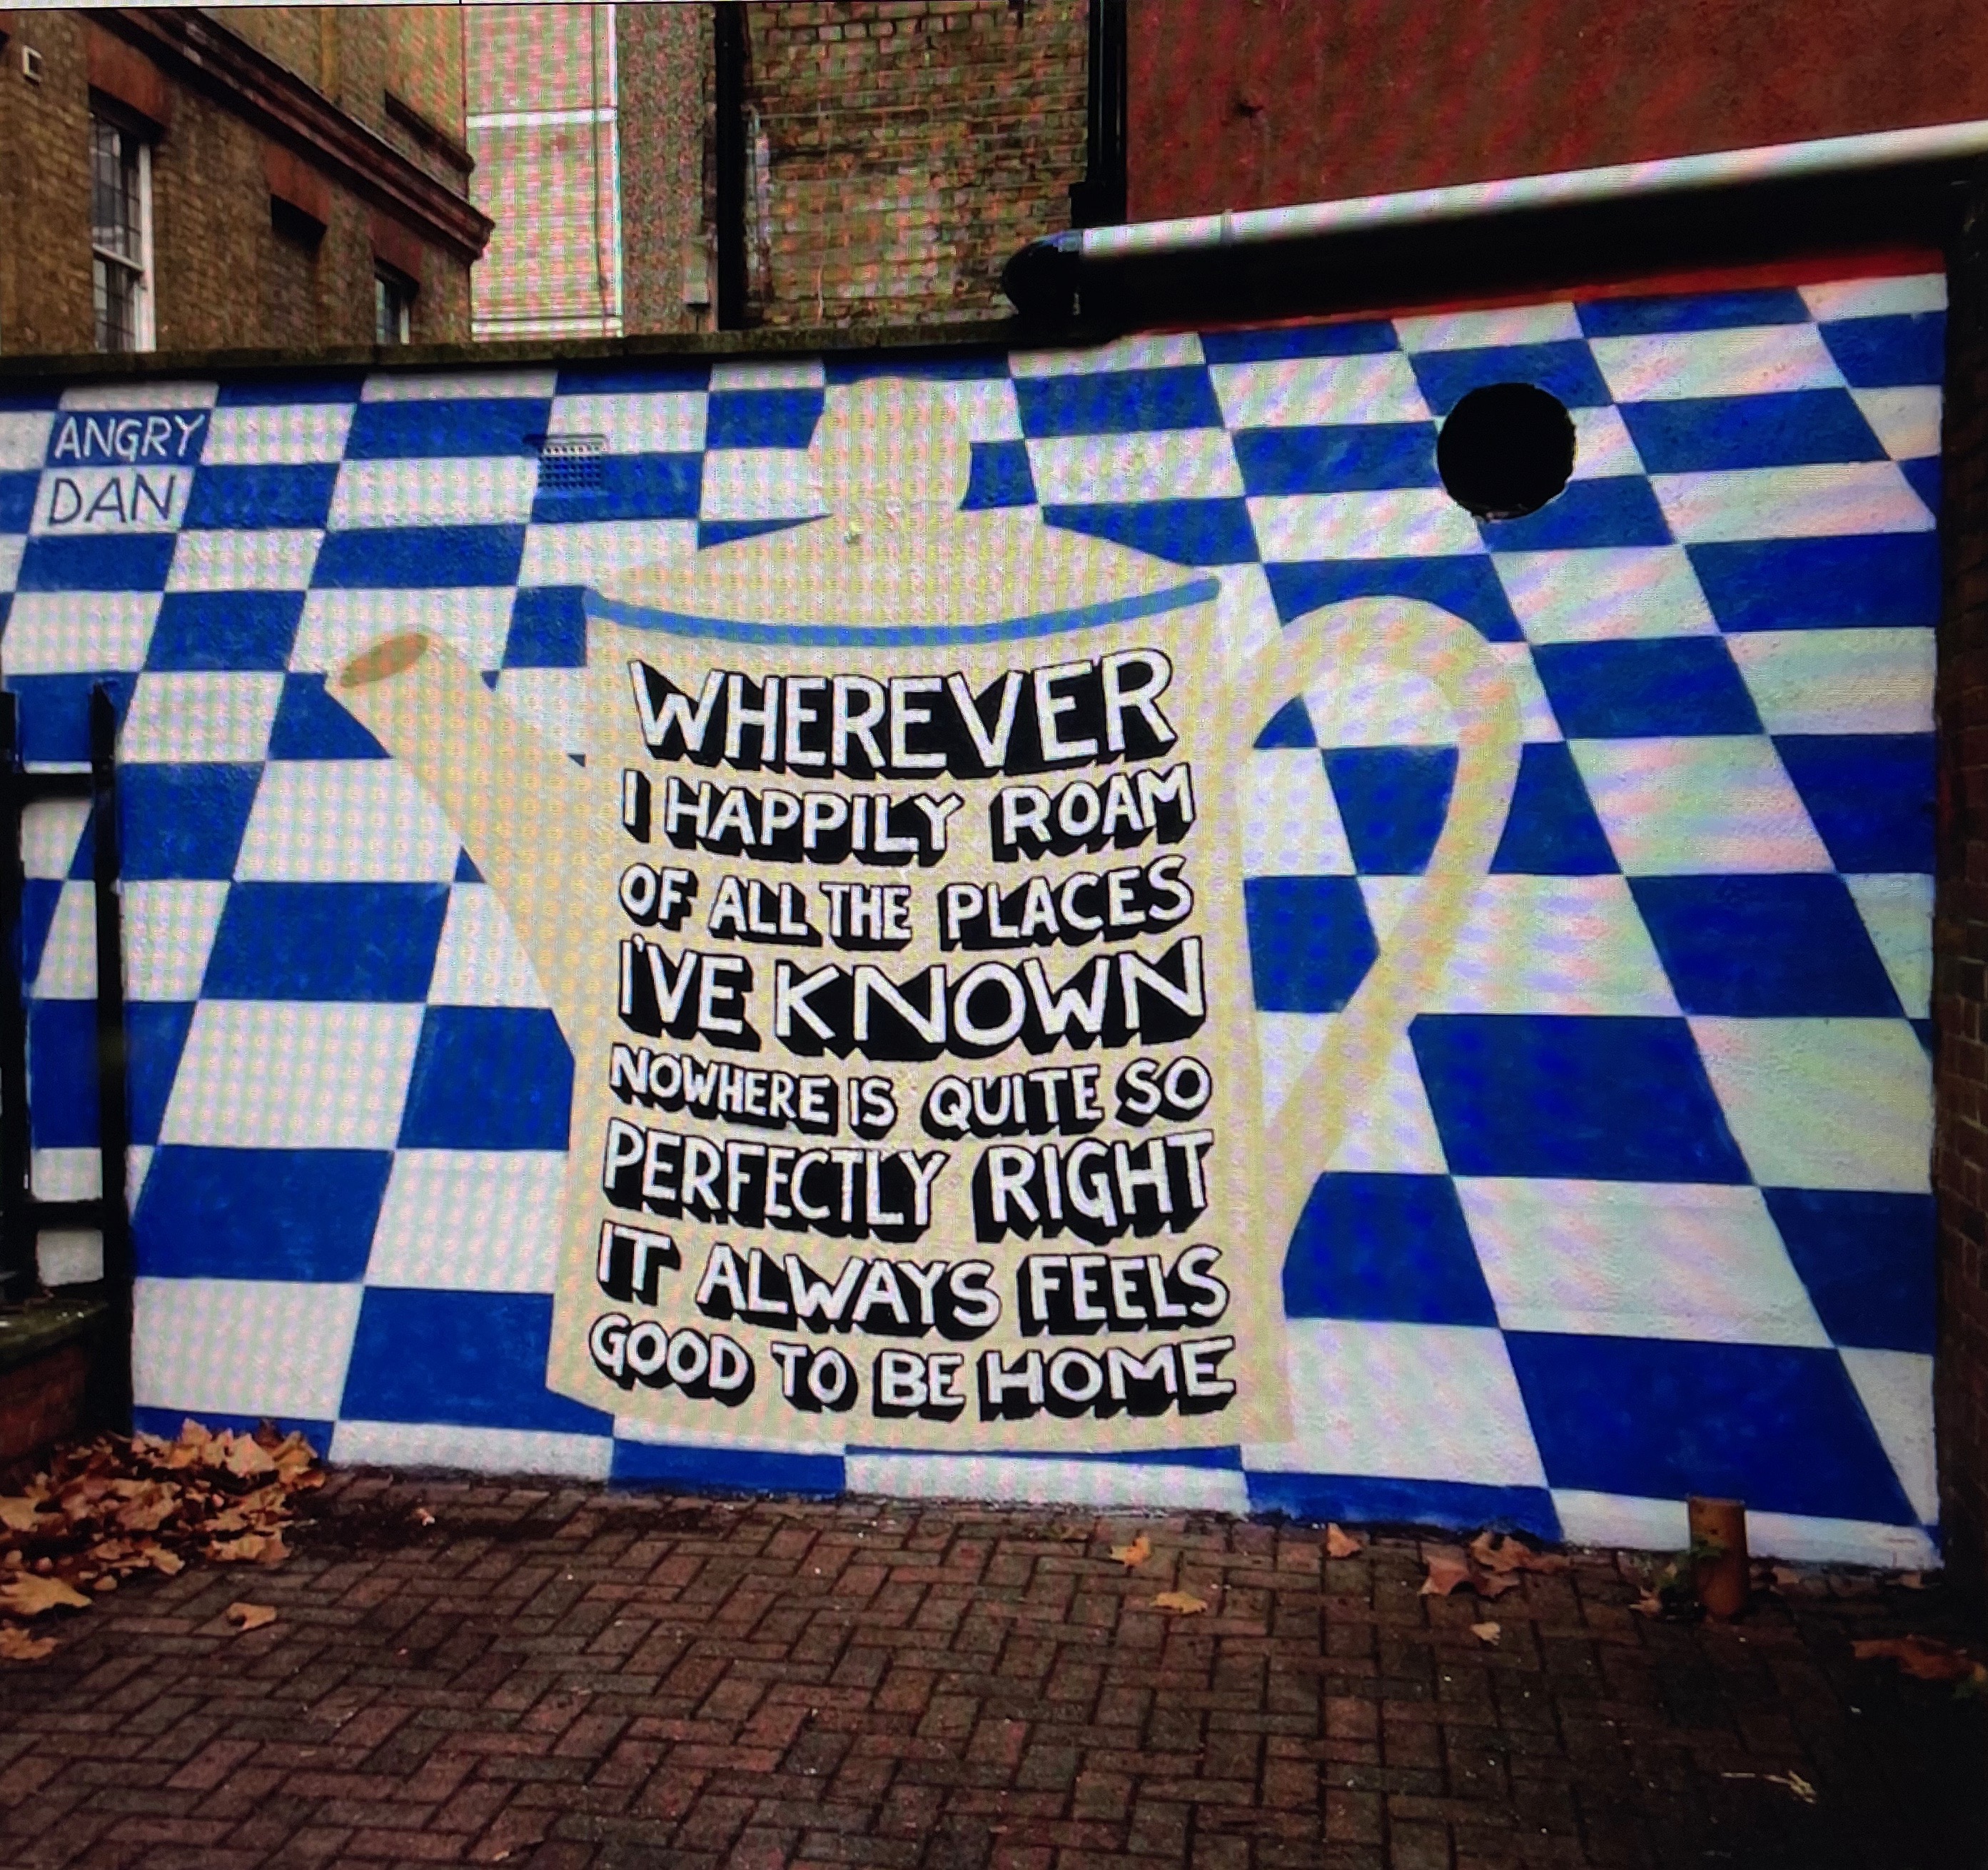 ANGRY
DAN
WHEREVER
I HAPPILY ROAM
OF ALL THE PLACES
I'VE KNOWN
NOWHERE IS QUITE SO
PERFECTLY RIGHT
IT ALWAYS FEELS
GOOD TO BE HOME